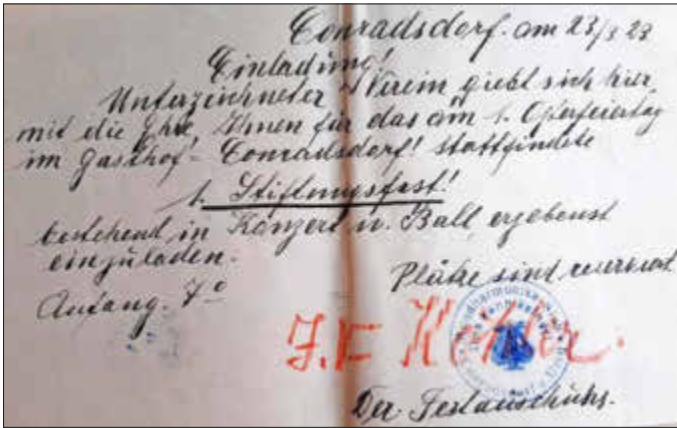 Conradsdorf. am 23/3 23
Einladung!
Unterzeichneter Verein giebt sich hier
mit die Ehre, Ihnen für das am 1. Osterfeiertag
im Gasthof- Conradsdorf! stattfindete
1. Stiftungsfest!
bestehend in Konzert u. Ball, ergebenst
einzuladen.
Plätze sind reserviert
Anfang. 7°
Der Festausschuhs.